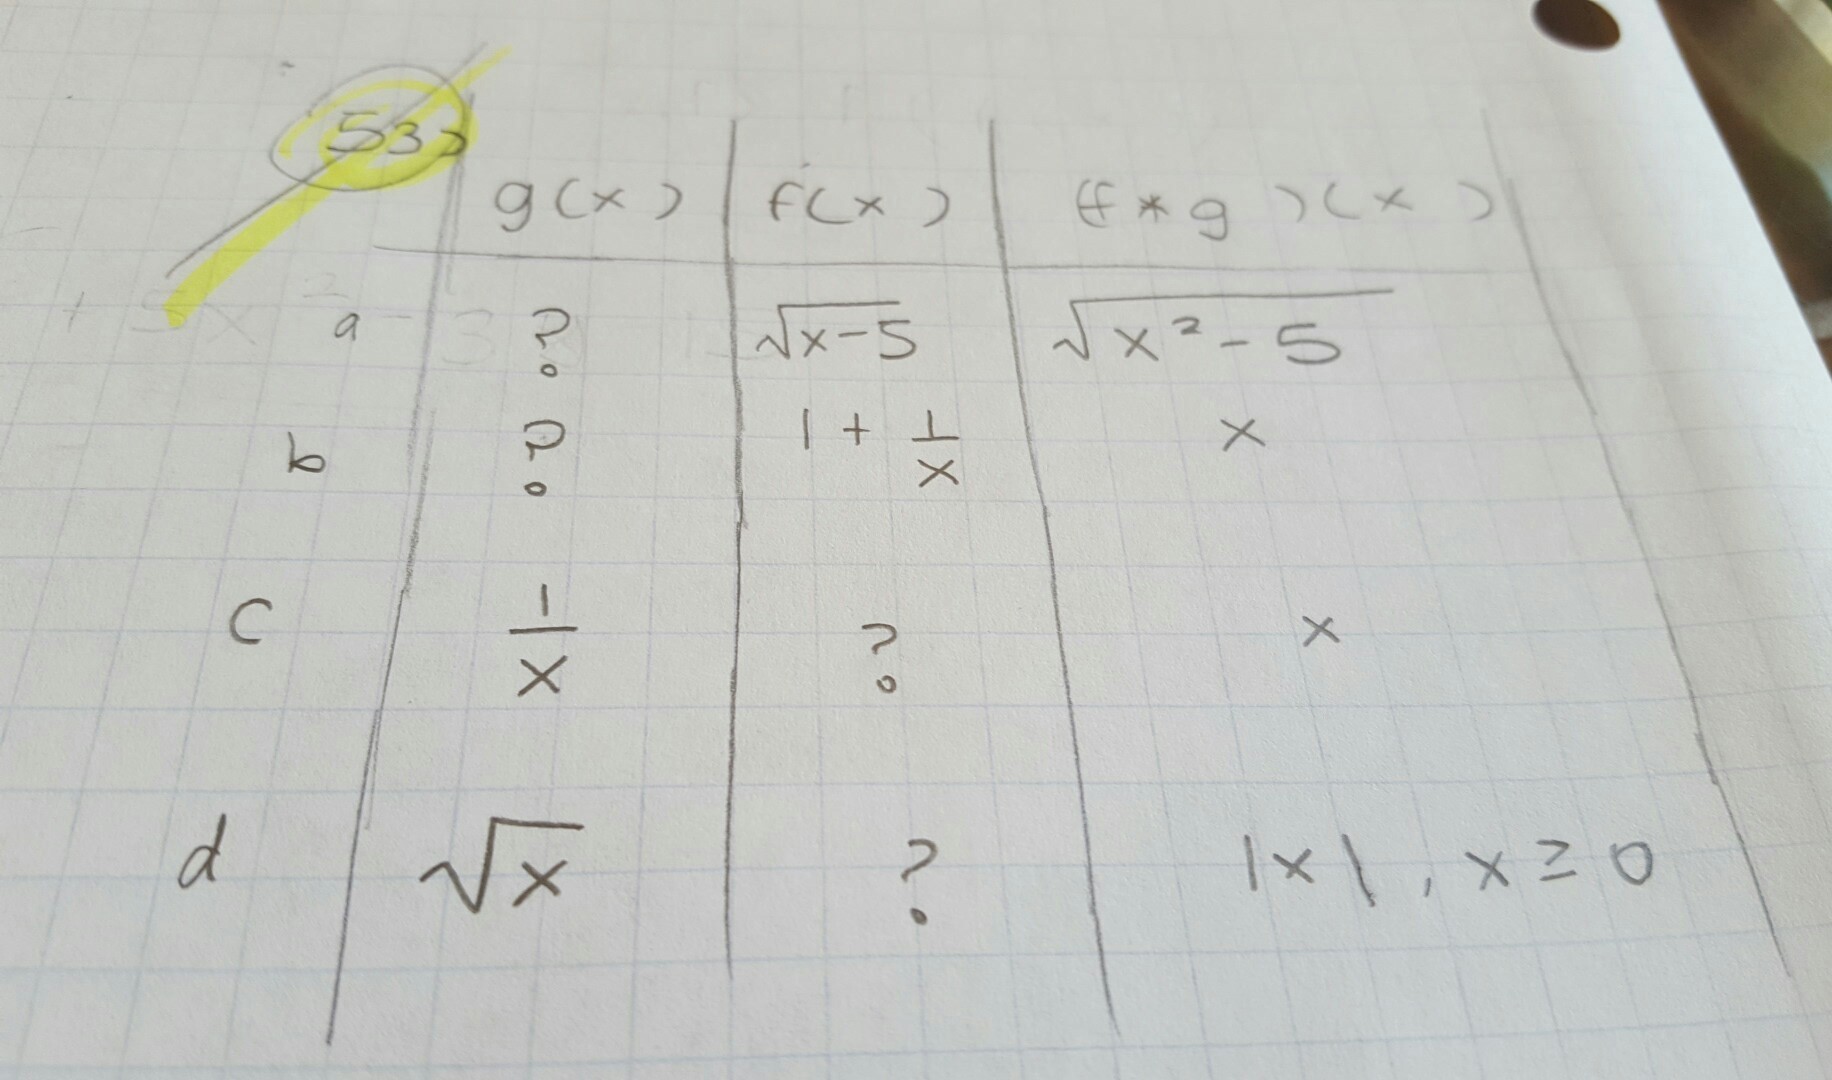 53
g(x) f(x) (f*g)(x)
a ? √x-5 √x²-5
b ? 1 + 1/x x
c 1/x ? x
d √x ? |x|, x ≥ 0